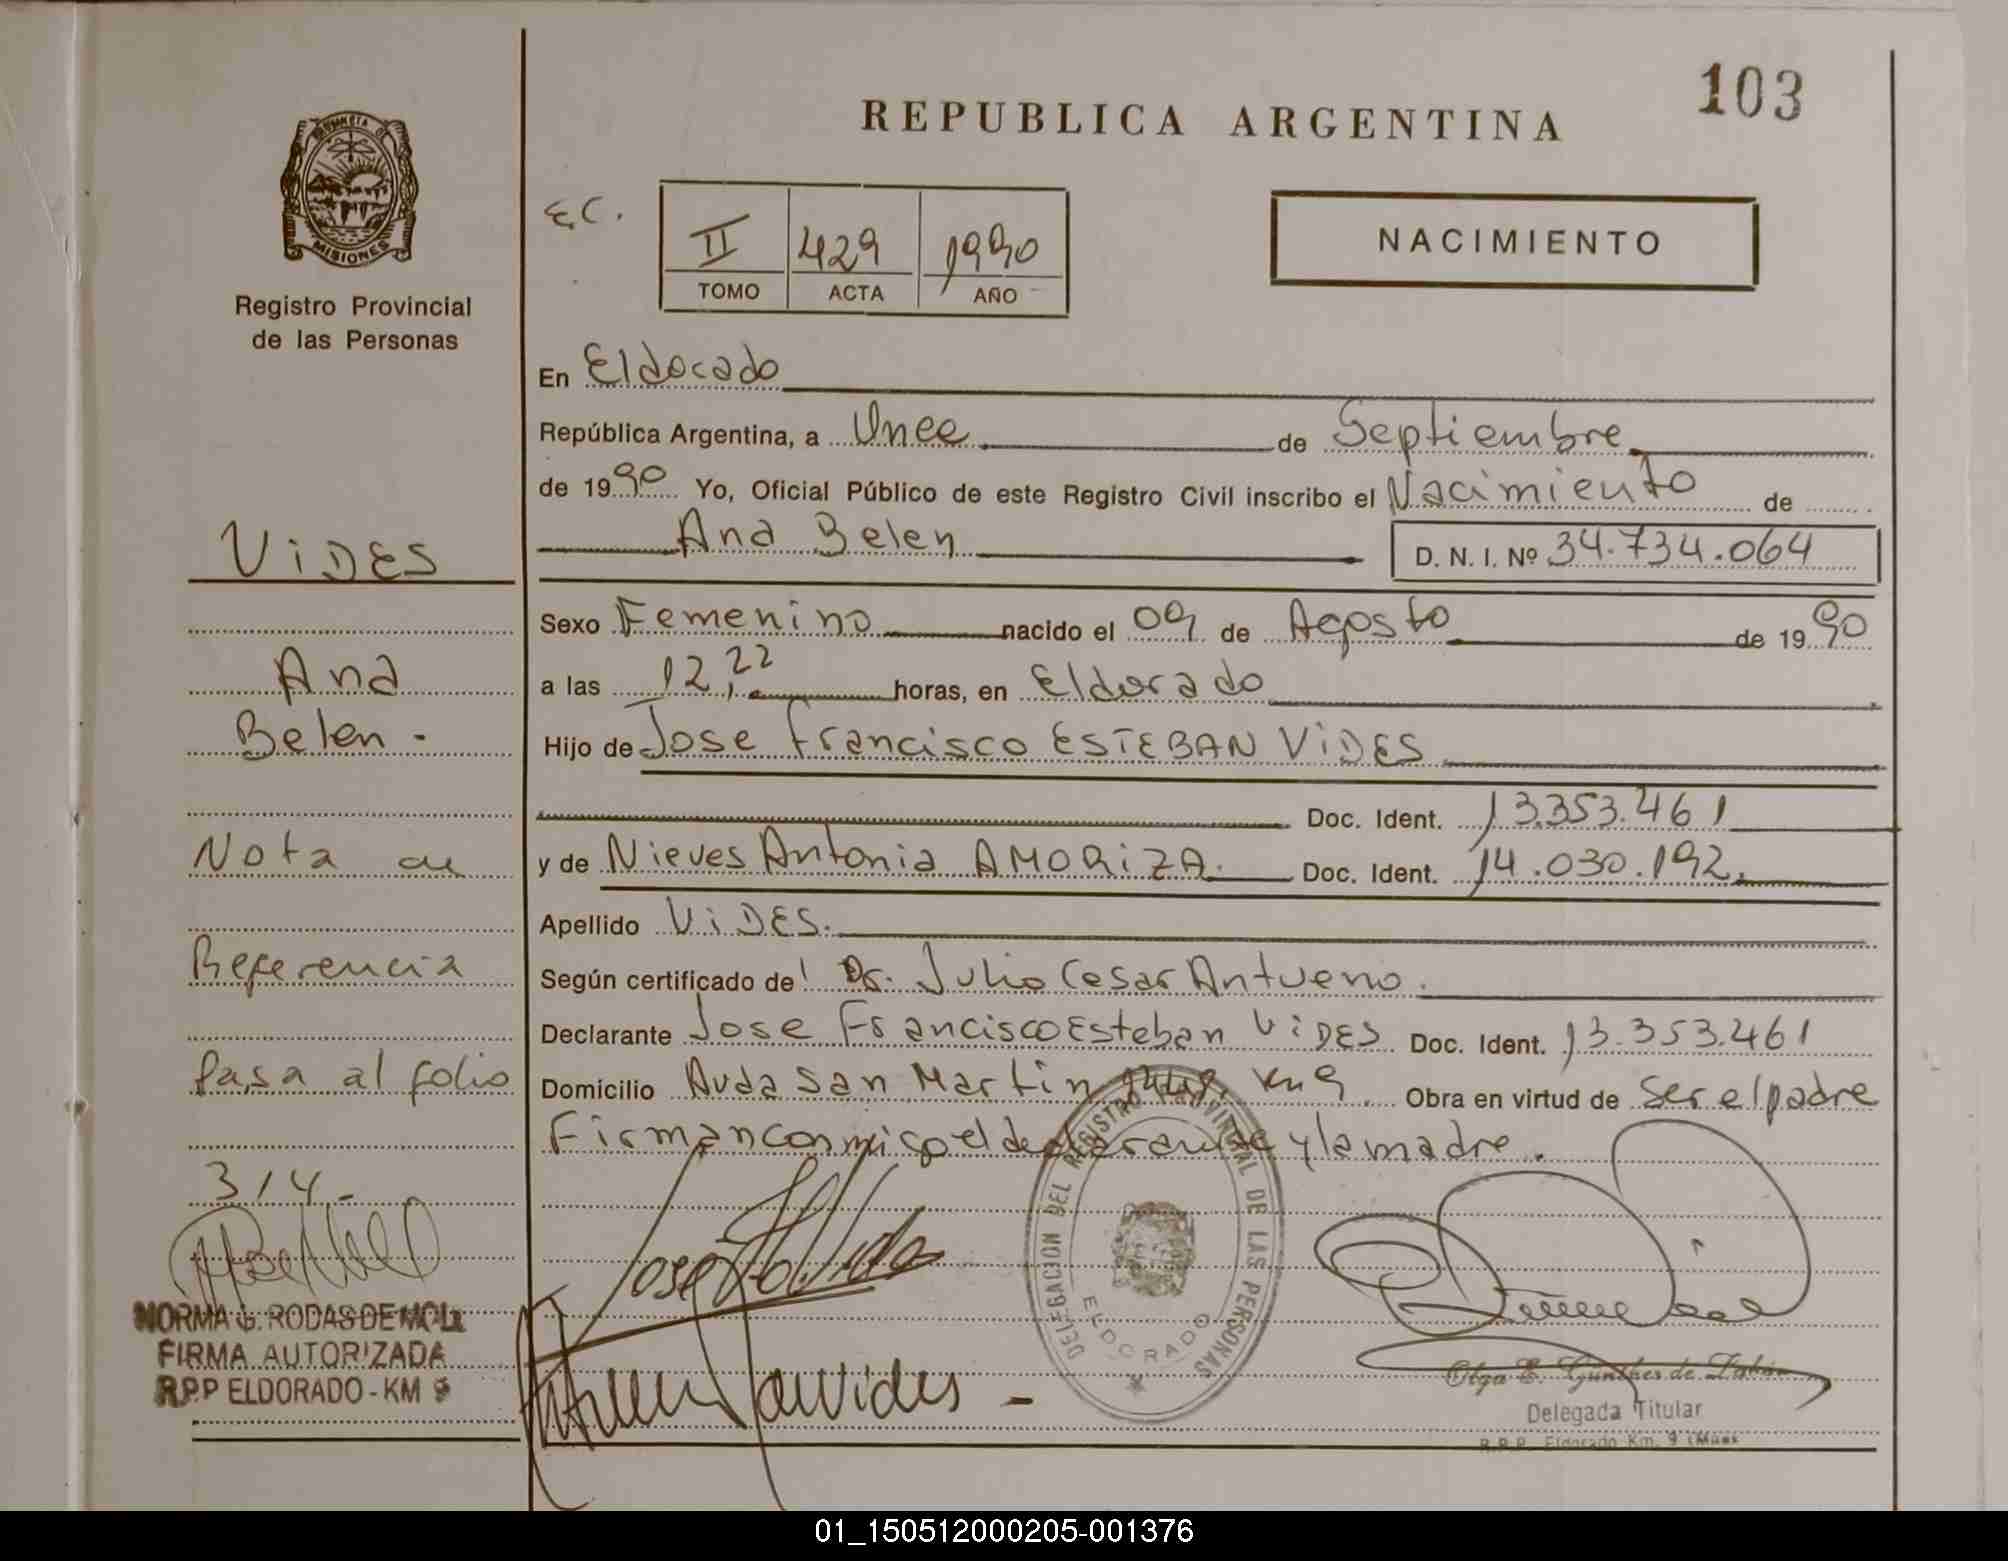 103
REPUBLICA ARGENTINA
PROVINCIA DE
MISIONES
Registro Provincial
de las Personas
E.C.
II 429 1990
TOMO ACTA AÑO
NACIMIENTO
En Eldorado
República Argentina, a Once de Septiembre
de 1990 Yo, Oficial Público de este Registro Civil inscribo el Nacimiento de
Ana Belen D. N. I. Nº 34.734.064
Sexo Femenino nacido el 09 de Agosto de 1990
a las 12,22 horas, en Eldorado
Hijo de Jose Francisco ESTEBAN VIDES
Doc. Ident. 13.353.461
y de Nieves Antonia AMORIZA. Doc. Ident. 14.030.192.
Apellido ViDES.
Según certificado de Dr. Julio Cesar Antueno.
Declarante Jose Francisco Esteban ViDES Doc. Ident. 13.353.461
Domicilio Avda San Martin km 9 Obra en virtud de ser el padre
Firman conmigo el declarante y la madre.
ViDES
Ana
Belen -
Nota de
Referencia
Pasa al folio
314-
NORMA G. RODAS DE MOLL
FIRMA AUTORIZADA
R.P.P ELDORADO - KM 9
DELEGACION DEL REGISTRO PROVINCIAL DE LAS PERSONAS
ELDORADO
Olga E. Günther de
Delegada Titular
R.P.P. Eldorado Km. 9
01_150512000205-001376